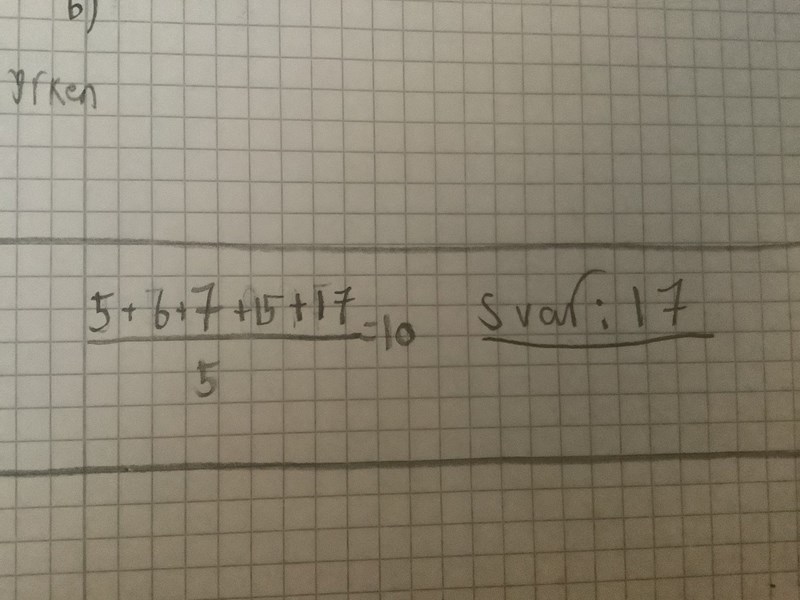 b)
yrken
5+6+7+15+17
5
=10
Svar: 17